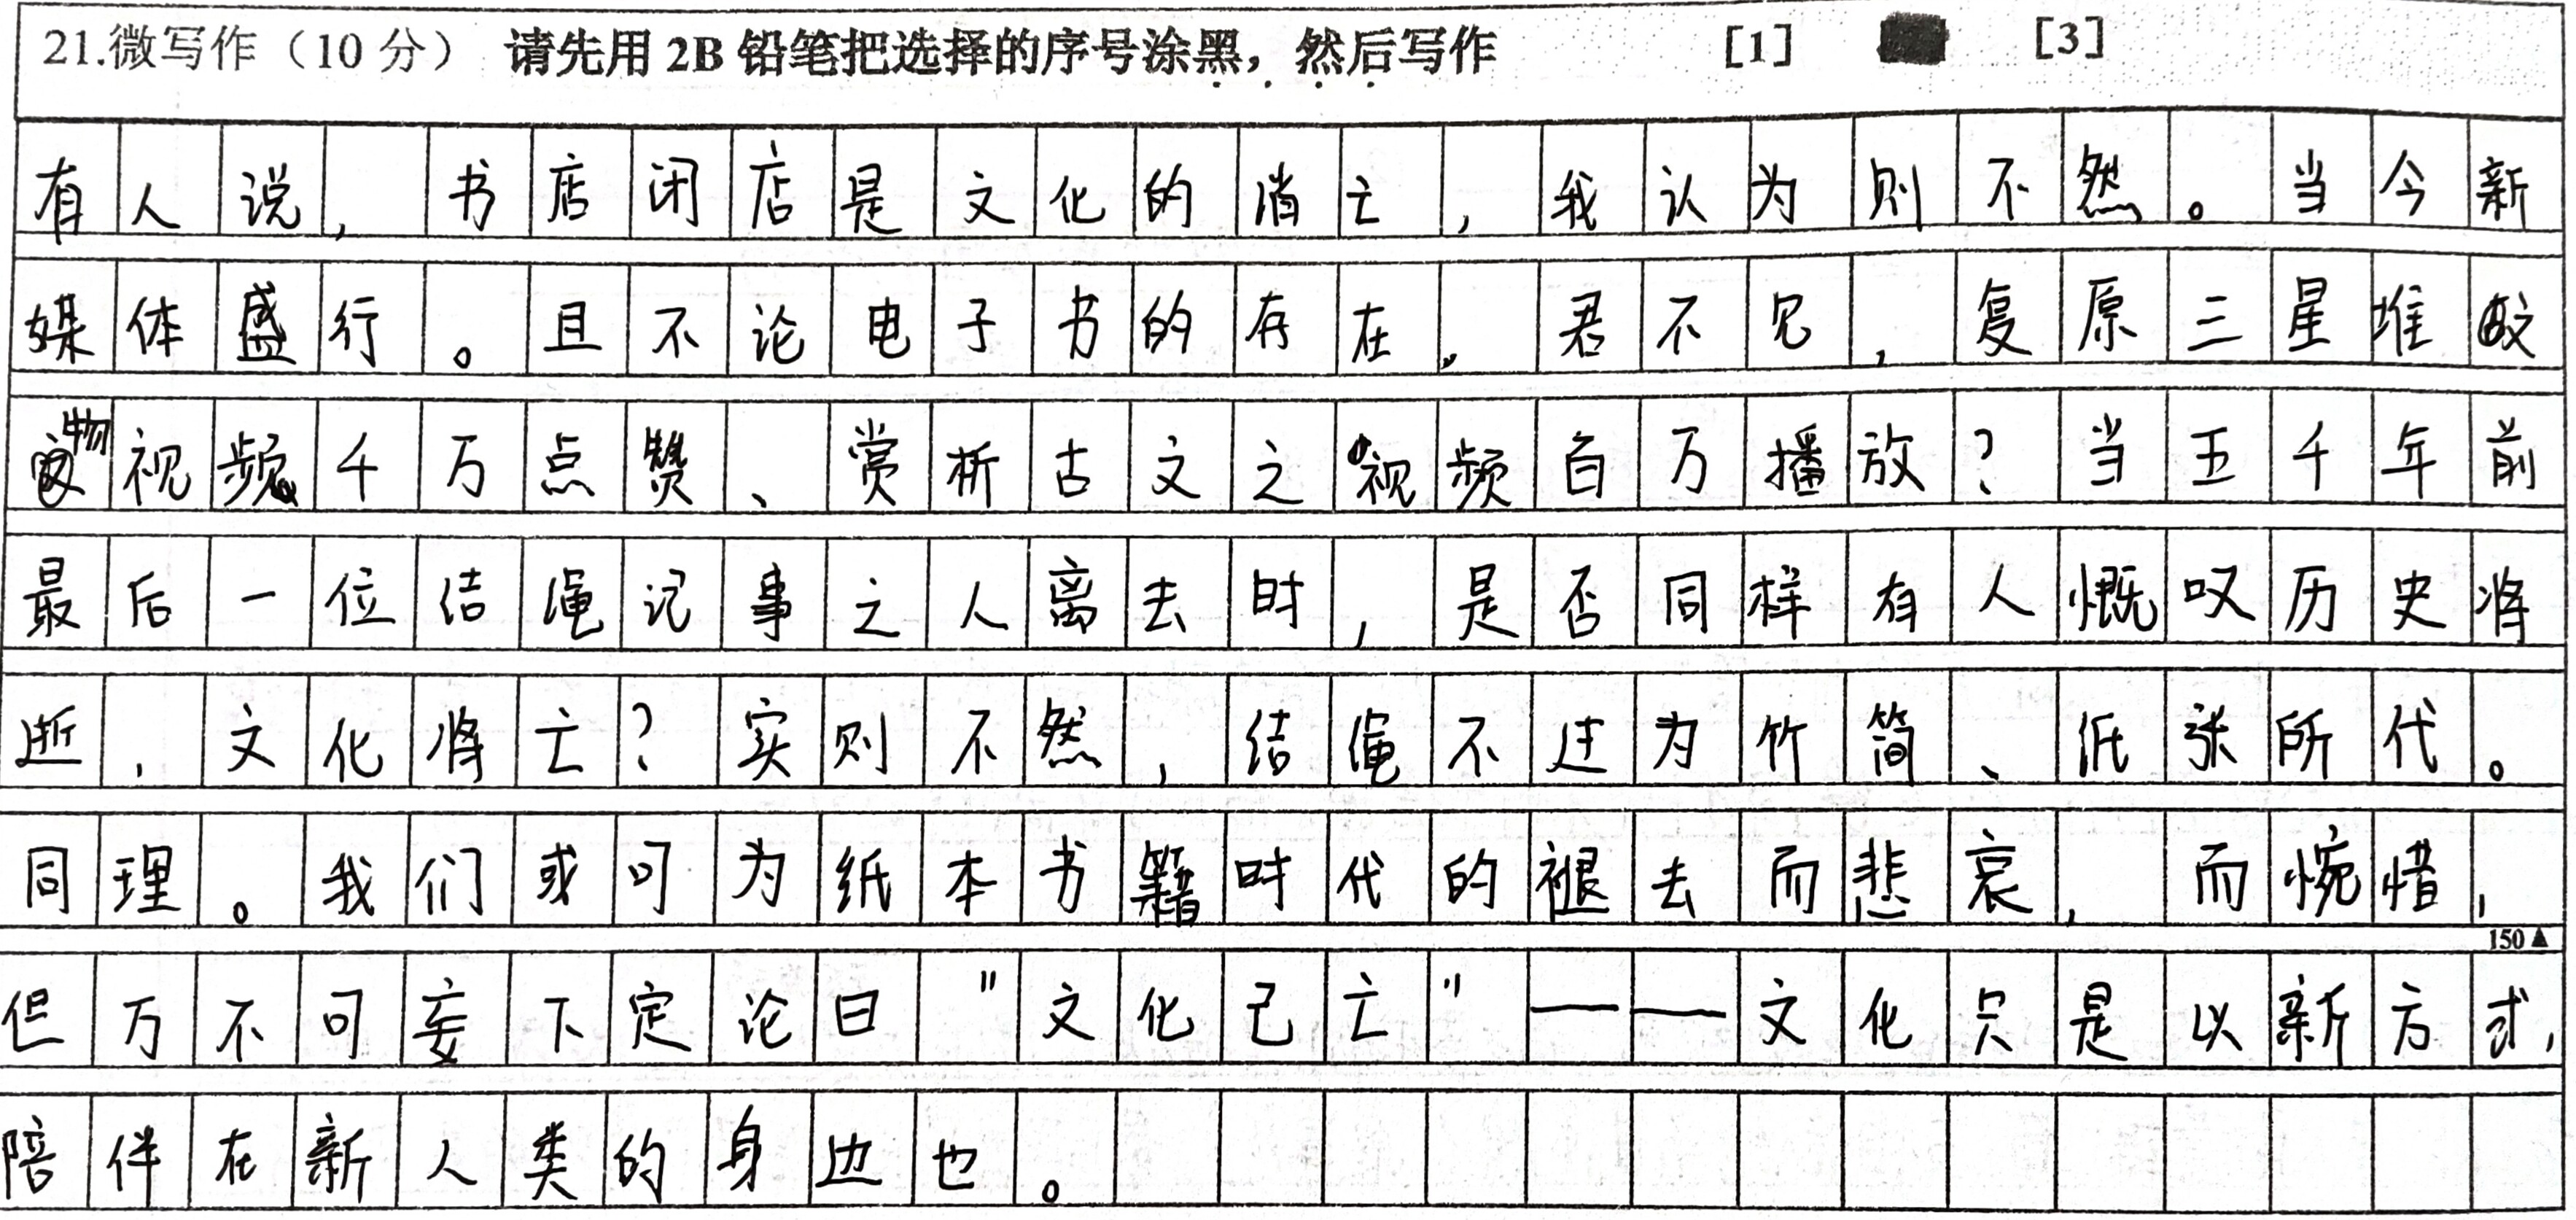 21.微写作（10 分） 请先用 2B 铅笔把选择的序号涂黑，然后写作 [1] [3]
有人说，书店闭店是文化的消亡，我认为则不然。当今新
媒体盛行。且不论电子书的存在，君不见，复原三星堆
物视频千万点赞、赏析古文之视频百万播放？当五千年前
最后一位结绳记事之人离去时，是否同样有人慨叹历史将
逝，文化将亡？实则不然，结绳不过为竹简、纸张所代。
同理。我们或可为纸本书籍时代的褪去而悲哀，而惋惜，
150▲
但万不可妄下定论曰"文化已亡"——文化只是以新方式，
陪伴在新人类的身边也。